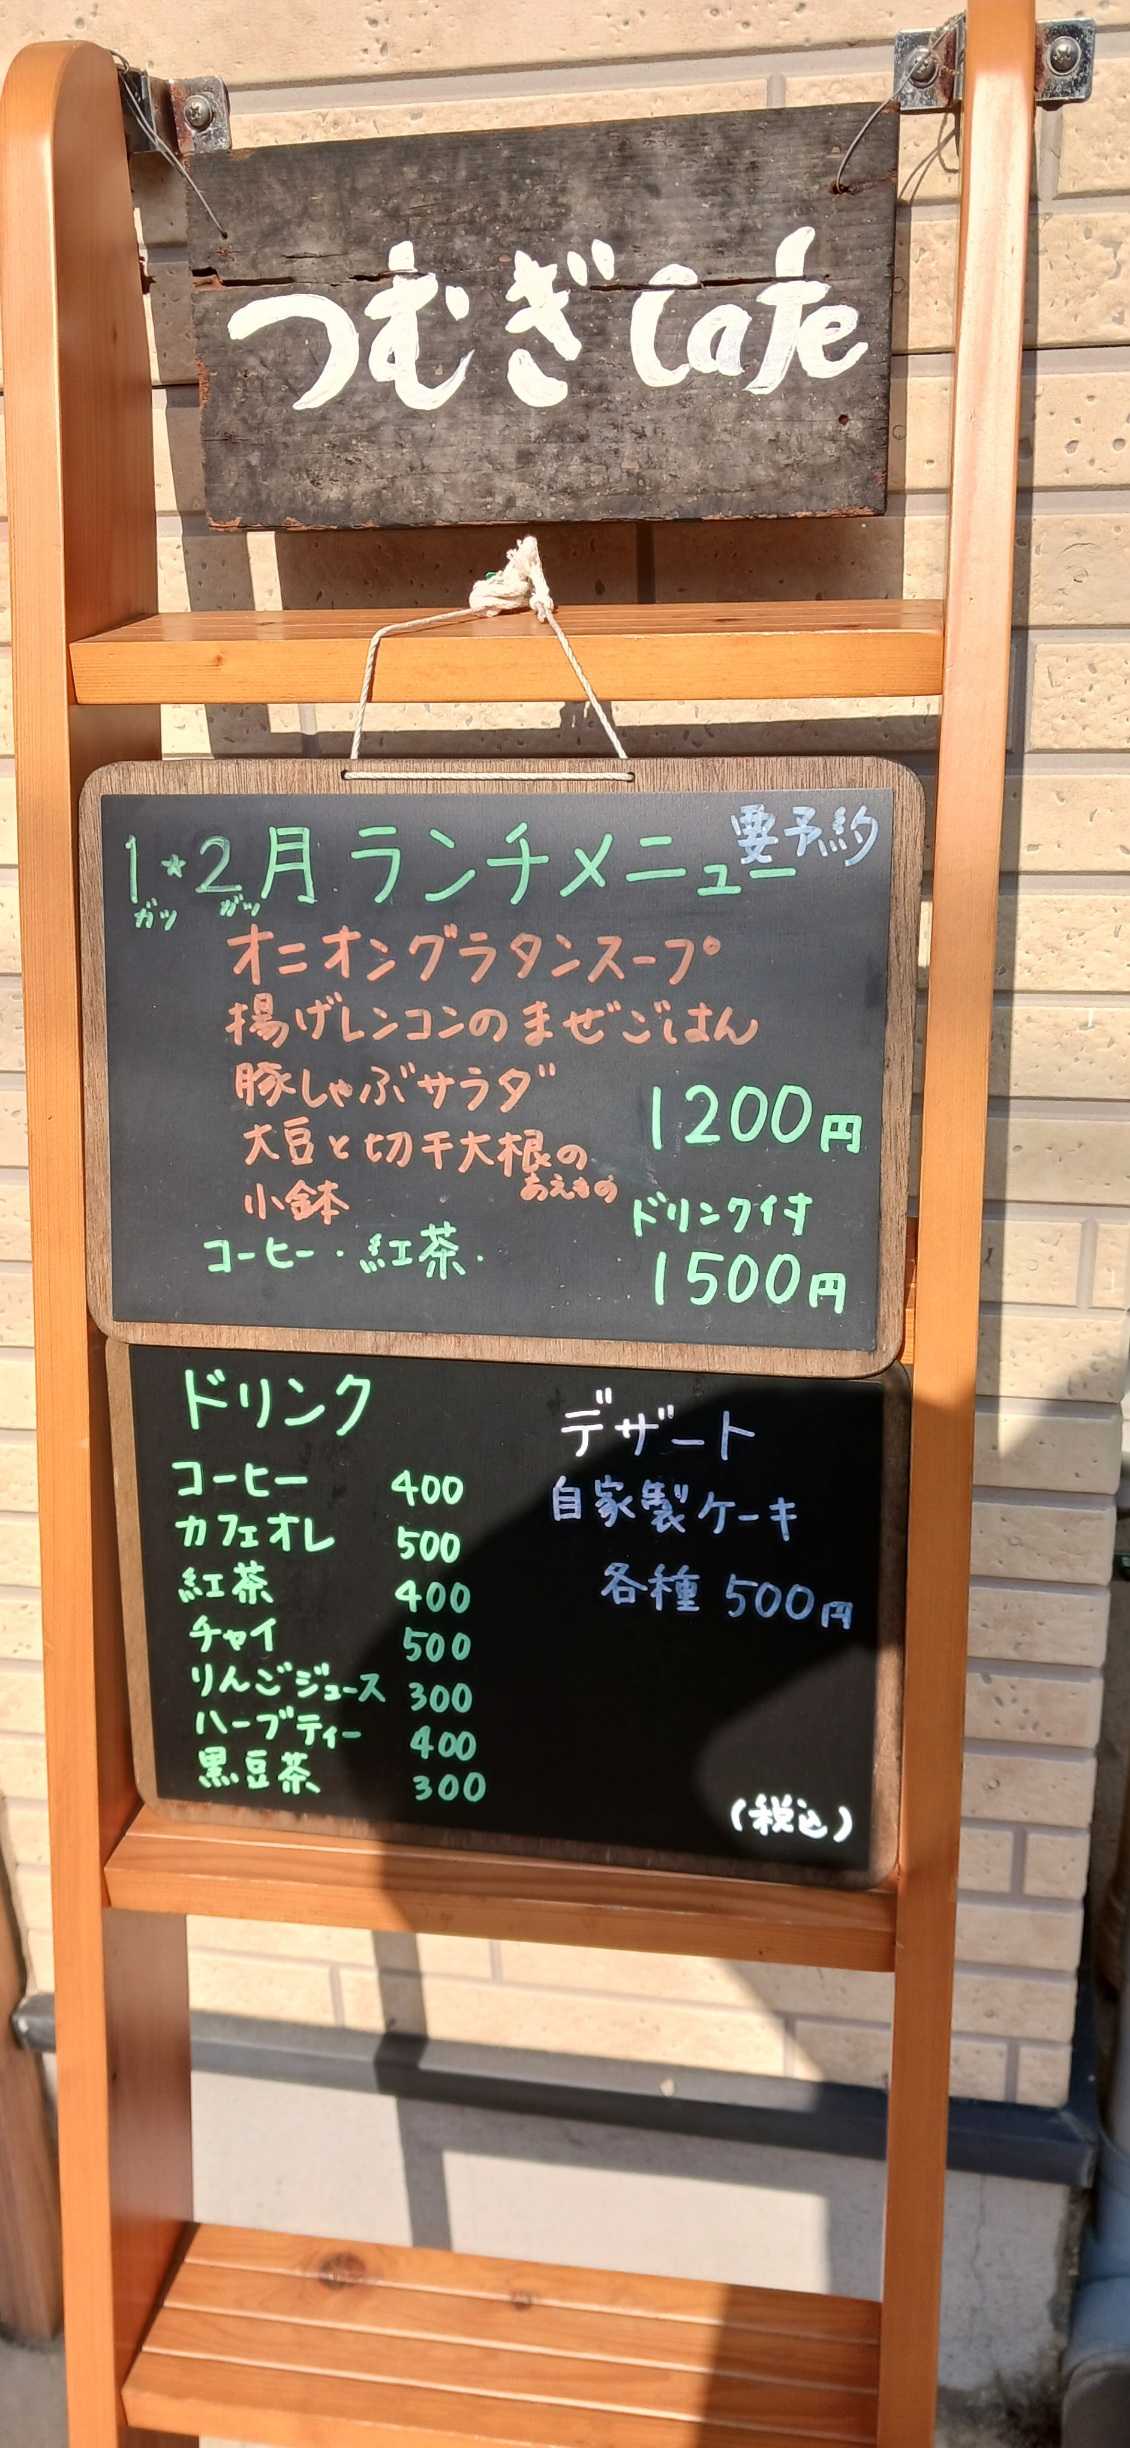 つむぎCafe
1*2月 ランチメニュー 要予約
ガツ ガツ
オニオングラタンスープ
揚げレンコンのまぜごはん
豚しゃぶサラダ
1200円
大豆と切干大根の
あえもの
小鉢
ドリンク付
コーヒー・紅茶.
1500円
ドリンク
コーヒー 400
カフェオレ 500
紅茶 400
チャイ 500
りんごジュース 300
ハーブティー 400
黒豆茶 300
デザート
自家製ケーキ
各種 500円
(税込)